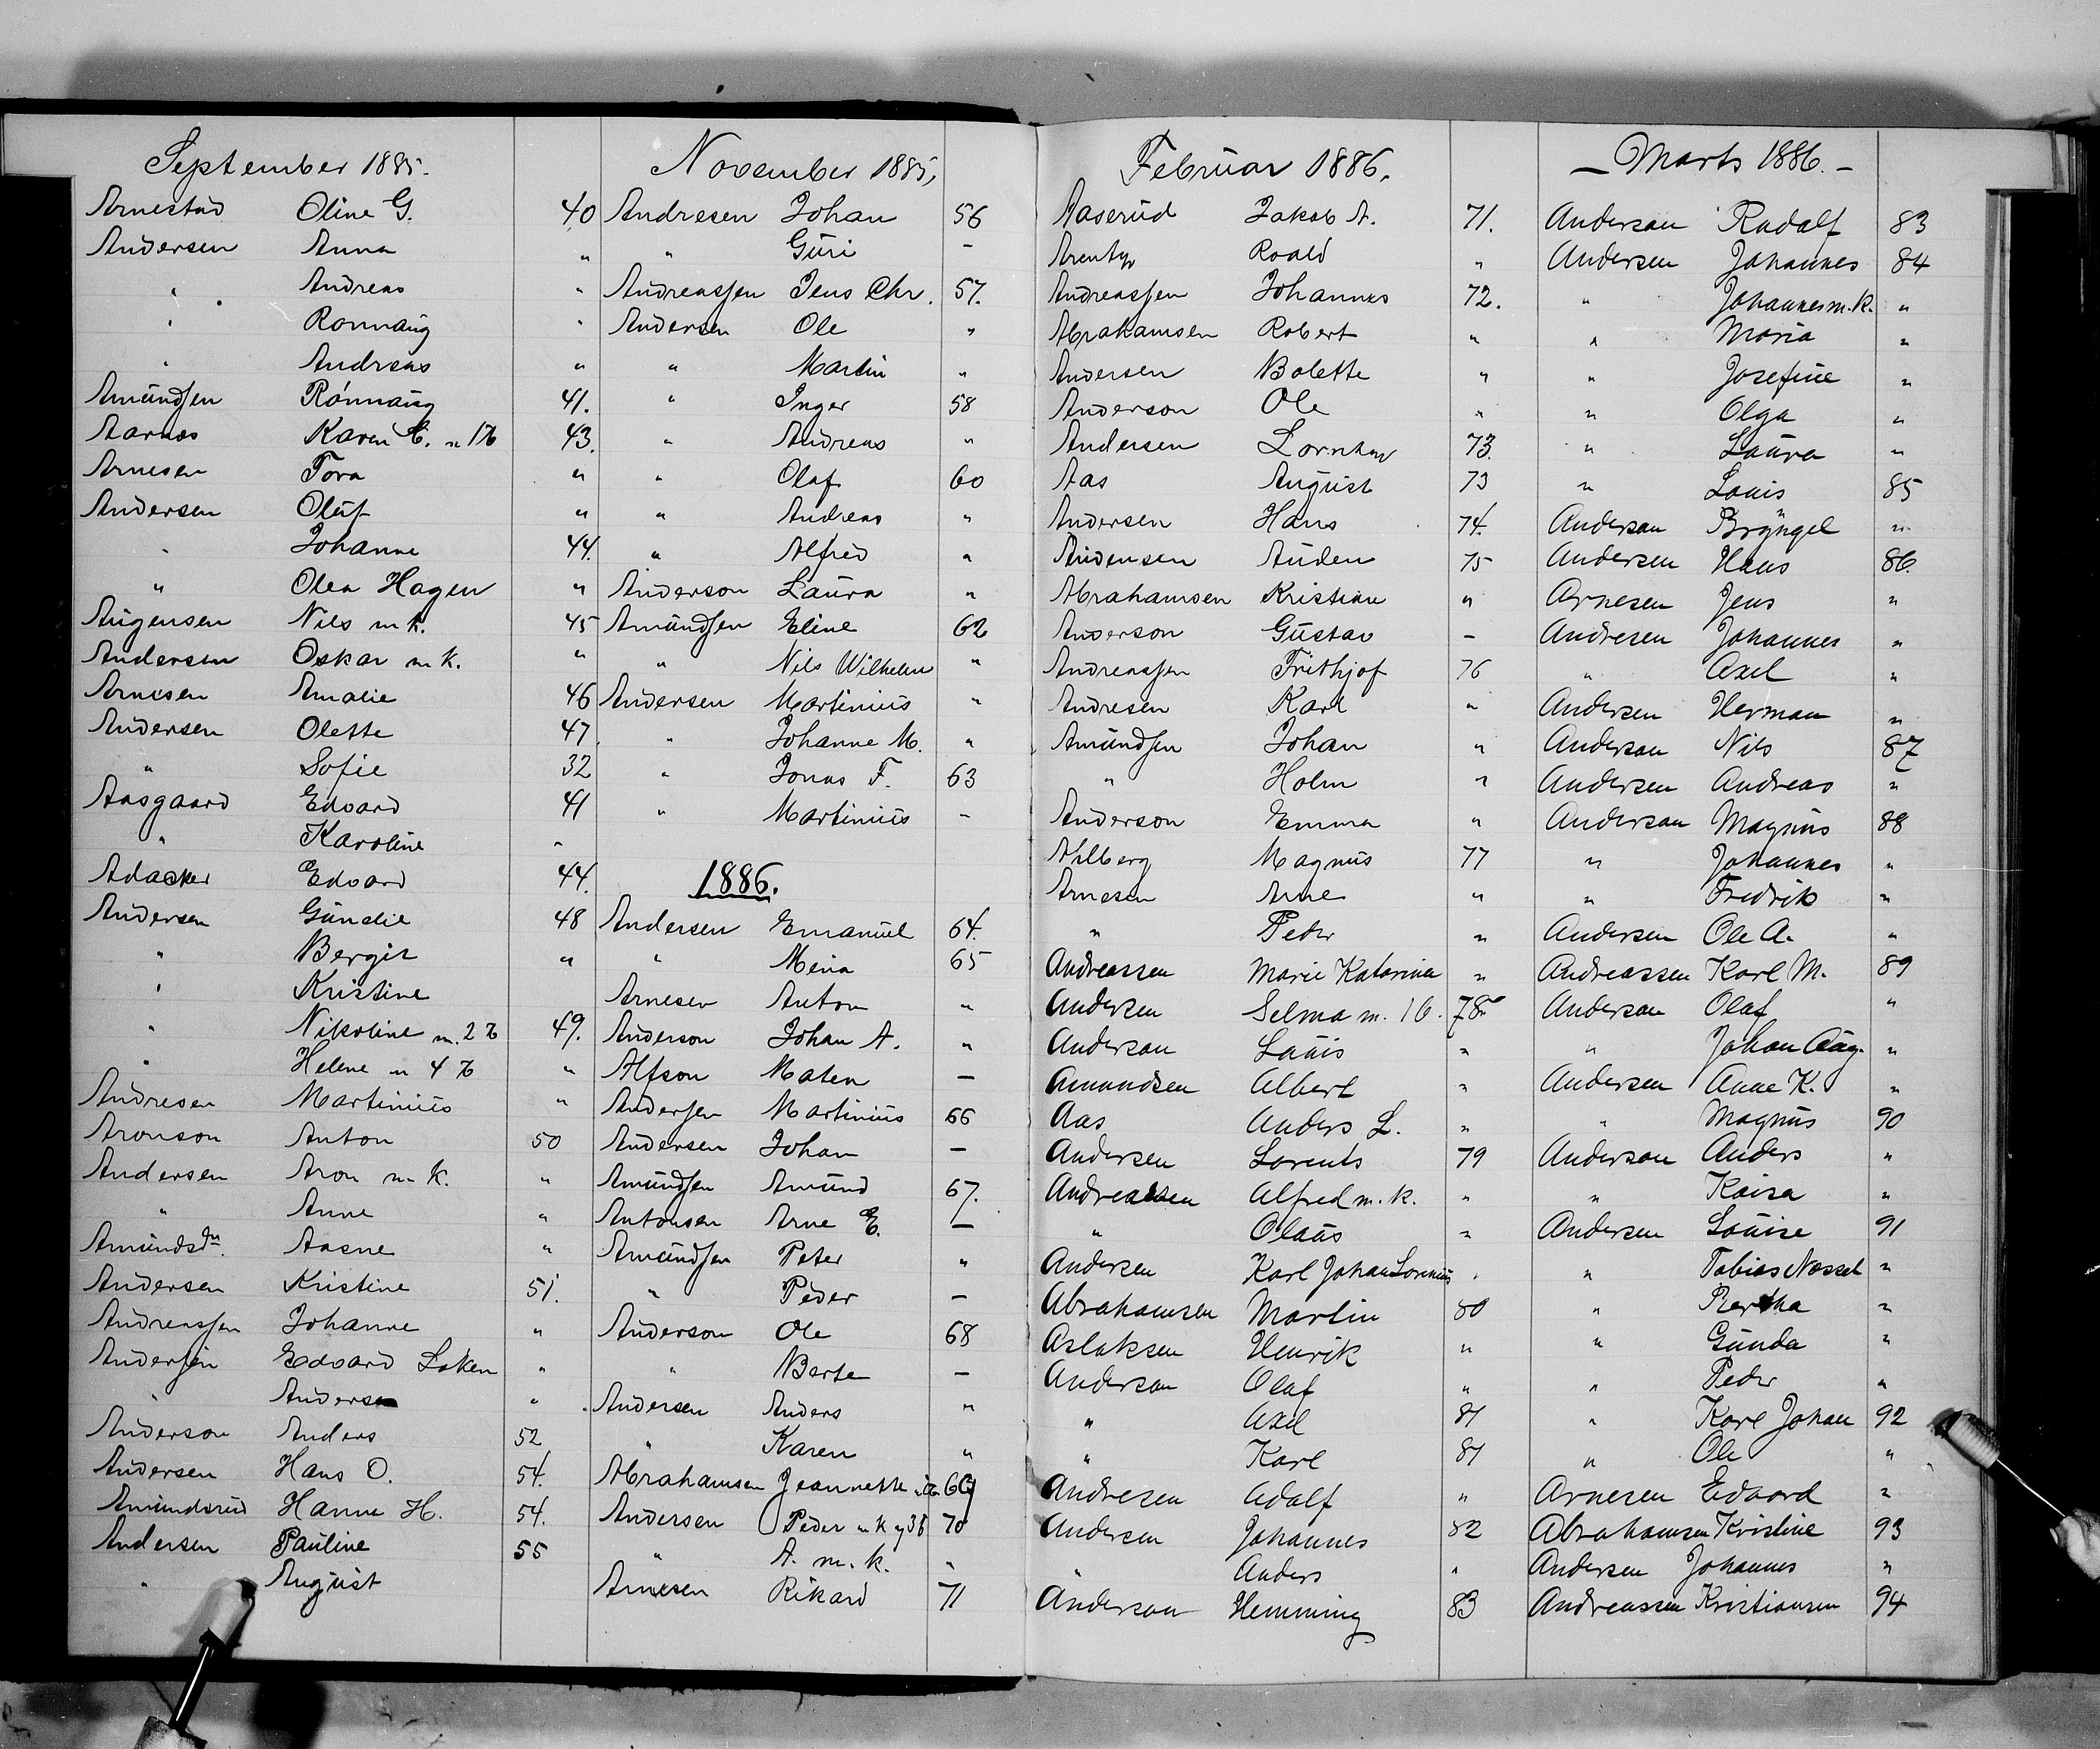 September 1885.
Arnestad Oline G. 40
Andersen Anna "
" Andreas "
" Ronnaug "
" Andreas "
Amundsen Rónnaug 41.
Aarnes Karen C. m 1 b 43.
Arnesen Tora "
Andersen Oluf "
" Johanne 44.
" Olea Hagen "
Augensen Nils m k. 45
Andersen Oskar m k. "
Arnesen Amalie 46
Andersen Olette 47
" Sofie 32
Aasgaard Edvard 41
" Karoline "
Adacker Edvard 44.
Andersen Gunelie 48
" Bergit "
" Kristine
" Nikoline m. 2 b 49.
" Helene m 4 b "
Andresen Martinius "
Aronson Anton 50
Andersen Aron m k. "
" Anne "
Amundsdn. Aasne "
Andersen Kristine 51.
Andreassen Johanne "
Andersen Edvard Loken "
" Anderse "
Anderson Anders 52
Andersen Hans O. 54.
Amundsrud Hanne H. 54.
Andersen Pauline 55
" August
November 1885,
Andresen Johan 56
" Guri -
Andreassen Jens Chr. 57.
Andersen Ole "
" Martin "
" Inger 58
" Andreas "
" Olaf 60
" Andreas "
" Alfred "
Anderson Laura "
Amundsen Eline 62
" Nils Wilhelm "
Andersen Martinius "
" Johanne M. "
" Jonas F. 63
" Martinius -
1886.
Andersen Emanuel 64.
" Mena 65
Arnesen Anton "
Anderson Johan A. "
Alfson Maten -
Andersen Martinius 66
Andersen Johan -
Amundsen Amund 67.
Antonsen Arne E. -
Amundsen Peter "
" Peder -
Anderson Ole 68
" Berte -
Andersen Anders "
" Karen "
Abrahamsen Jeannette 69
Andersen Peder m k og 3 b 70
" A. m. k. "
Arnesen Rikard 71
Februar 1886.
Aaserud Jakob A. 71.
Arentz Roald "
Andreassen Johannes 72.
Abrahamsen Robert "
Andersen Bolette "
Anderson Ole "
Andersen Lornhav 73.
Aas August 73
Andersen Hans 74.
Audensen Auden 75
Abrahamsen Kristian "
Anderson Gustav -
Andreassen Frithjof 76
Andresen Karl "
Amundsen Johan "
" Holm "
Anderson Emma "
Ahlberg Magnus 77
Arnesen Arne "
" Peder "
Andreassen Marie Katarina "
Andersen Selma m. 1 b. 78
Anderson Louis "
Amundsen Albert "
Aas Anders L. "
Andersen Lorents 79
Andreassen Alfred m. k. "
" Olaus "
Andersen Karl Johan Lorenius "
Abrahamsen Martin 80
Aslaksen Henrik "
Anderson Olaf "
" Axel 81
" Karl 81
Andresen Adolf "
Andersen Johannes 82
" Anders "
Anderson Hemming 83
- Marts 1886. -
Anderson Rudolf 83
Andersen Johannes 84
" Johannes m. k. "
" Maria "
" Josefine "
" Olga "
" Laura "
" Louis 85
Anderson Bryngel "
Andersen Hans 86.
Arnesen Jens "
Andresen Johannes "
" Axel "
Andersen Herman "
Anderson Nils 87
Andersen Andreas "
Anderson Magnus 88
" Johannes "
" Fredrik "
Andersen Ole A. "
Andreassen Karl M. 89
Anderson Olaf "
" Johan Aug. "
Andersen Anne K. "
" Magnus 90
Anderson Anders "
" Kaisa "
Andersen Louise 91
" Tobias Nossel "
" Bertha "
" Gunda "
" Peder "
" Karl Johan 92
" Ole "
Arnesen Edvard "
Abrahamsen Kristine 93
Andersen Johannes "
Andreassen Kristiansen 94